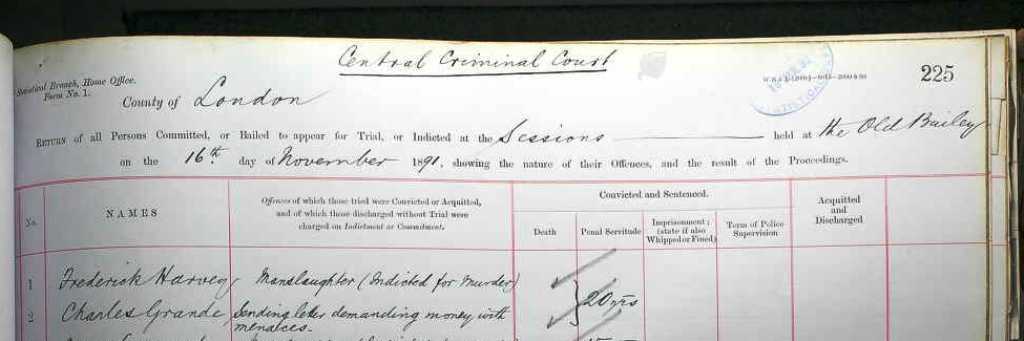 Central Criminal Court
Statistical Branch, Home Office.
Form No. 1.
225
County of London
RETURN of all Persons Committed, or Bailed to appear for Trial, or Indicted at the Sessions held at the Old Bailey
on the 16th day of November 1891, showing the nature of their Offences, and the result of the Proceedings.
No.
NAMES
Offences of which those tried were Convicted or Acquitted,
and of which those discharged without Trial were
charged on Indictment or Commitment.
Convicted and Sentenced.
Death
Penal Servitude
Imprisonment;
(state if also
Whipped or Fined)
Term of Police
Supervision
Acquitted
and
Discharged
1 Frederick Harvey Manslaughter (Indicted for Murder)
20 yrs
2 Charles Grande, Sending letter demanding money with
menaces.